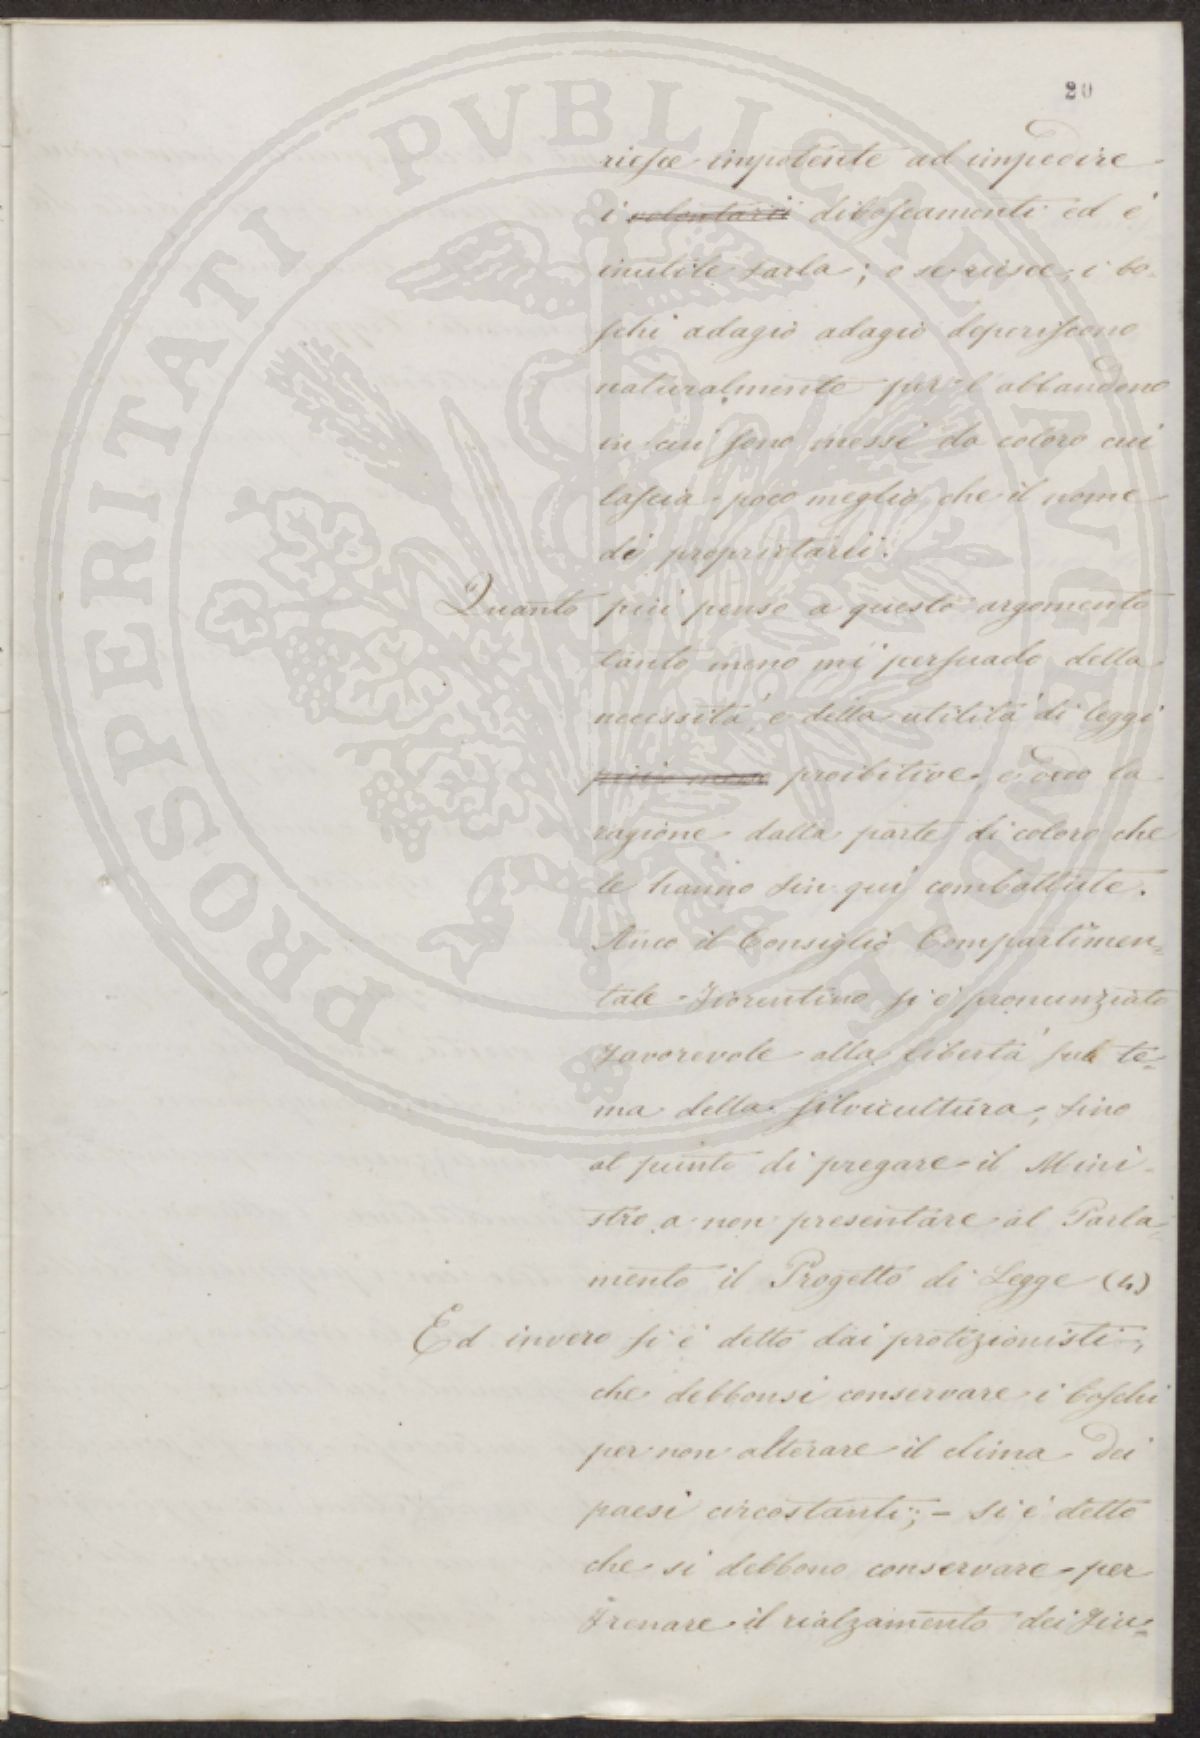 20
riesce impotente ad impedire
i volontarii diboscamenti ed è
inutile farla; o se riesce, i bo-
schi adagio adagio deperiscono
naturalmente per l'abbandono
in cui sono messi da coloro cui
lascia poco meglio che il nome
di proprietarii.
Quanto più penso a questo argomento
tanto meno mi persuado della
necessità, e della utilità di leggi
più o meno proibitive, e vedo la
ragione dalla parte di coloro che
le hanno sin qui combattute.
Anco il Consiglio Compartimen=
tale Fiorentino si è pronunziato
favorevole alla libertà sul te=
ma della silvicultura, sino
al punto di pregare il Mini-
stro a non presentare al Parla=
mento il Progetto di Legge (4)
Ed invero si è detto dai protezionisti,
che debbonsi conservare i boschi
per non alterare il clima dei
paesi circostanti; - si è detto
che si debbono conservare per
frenare il rialzamento dei fiu=
PROSPERITATI PVBLICAE AVGENDAE